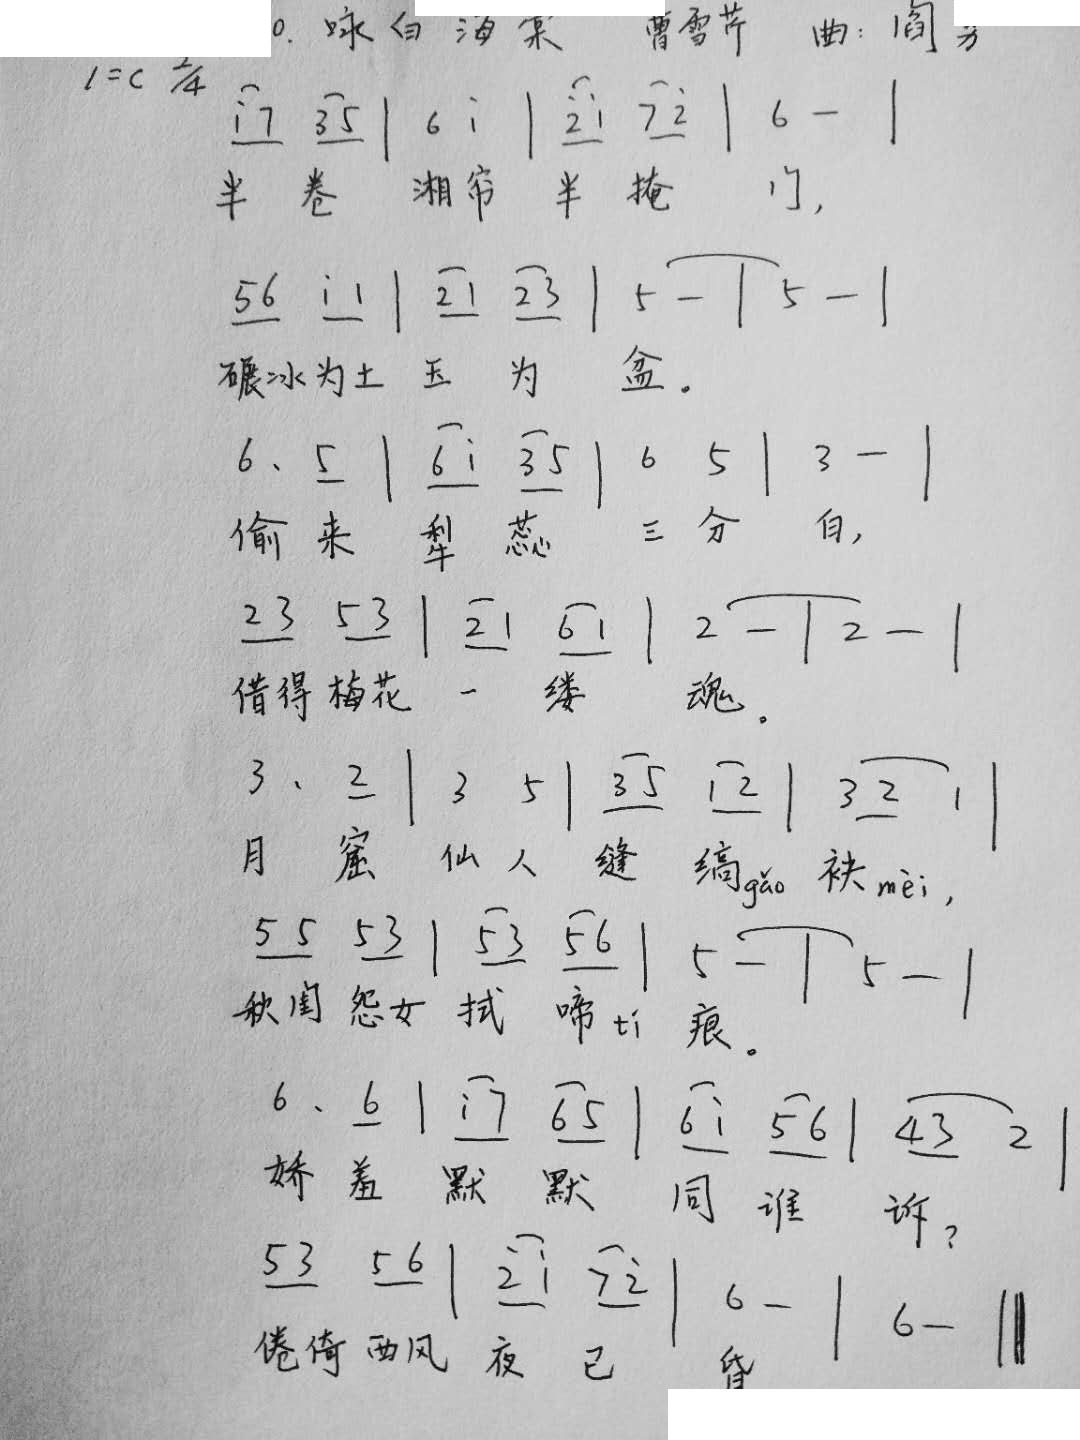 0. 咏白海棠 曹雪芹 曲: 阎
1=C 2/4
i7 35 | 6 i | 2i 72 | 6 — |
半 卷 湘帘 半 掩 门,
56 i1 | 21 23 | 5 — | 5 — |
碾冰为土 玉 为 盆。
6、5 | 6i 35 | 6 5 | 3 — |
偷 来 犁 蕊 三 分 白,
23 53 | 21 61 | 2 — | 2 — |
借得梅花 一 缕 魂。
3、2 | 3 5 | 35 12 | 32 1 |
月 窟 仙人 缝 缟gǎo 袂mèi,
55 53 | 53 56 | 5 — | 5 — |
秋闺 怨女 拭 啼tí 痕。
6、6 | i7 65 | 6i 56 | 43 2 |
娇 羞 默 默 同 谁 诉?
53 56 | 2i 72 | 6 — | 6 — ‖
倦倚 西风 夜 已 昏